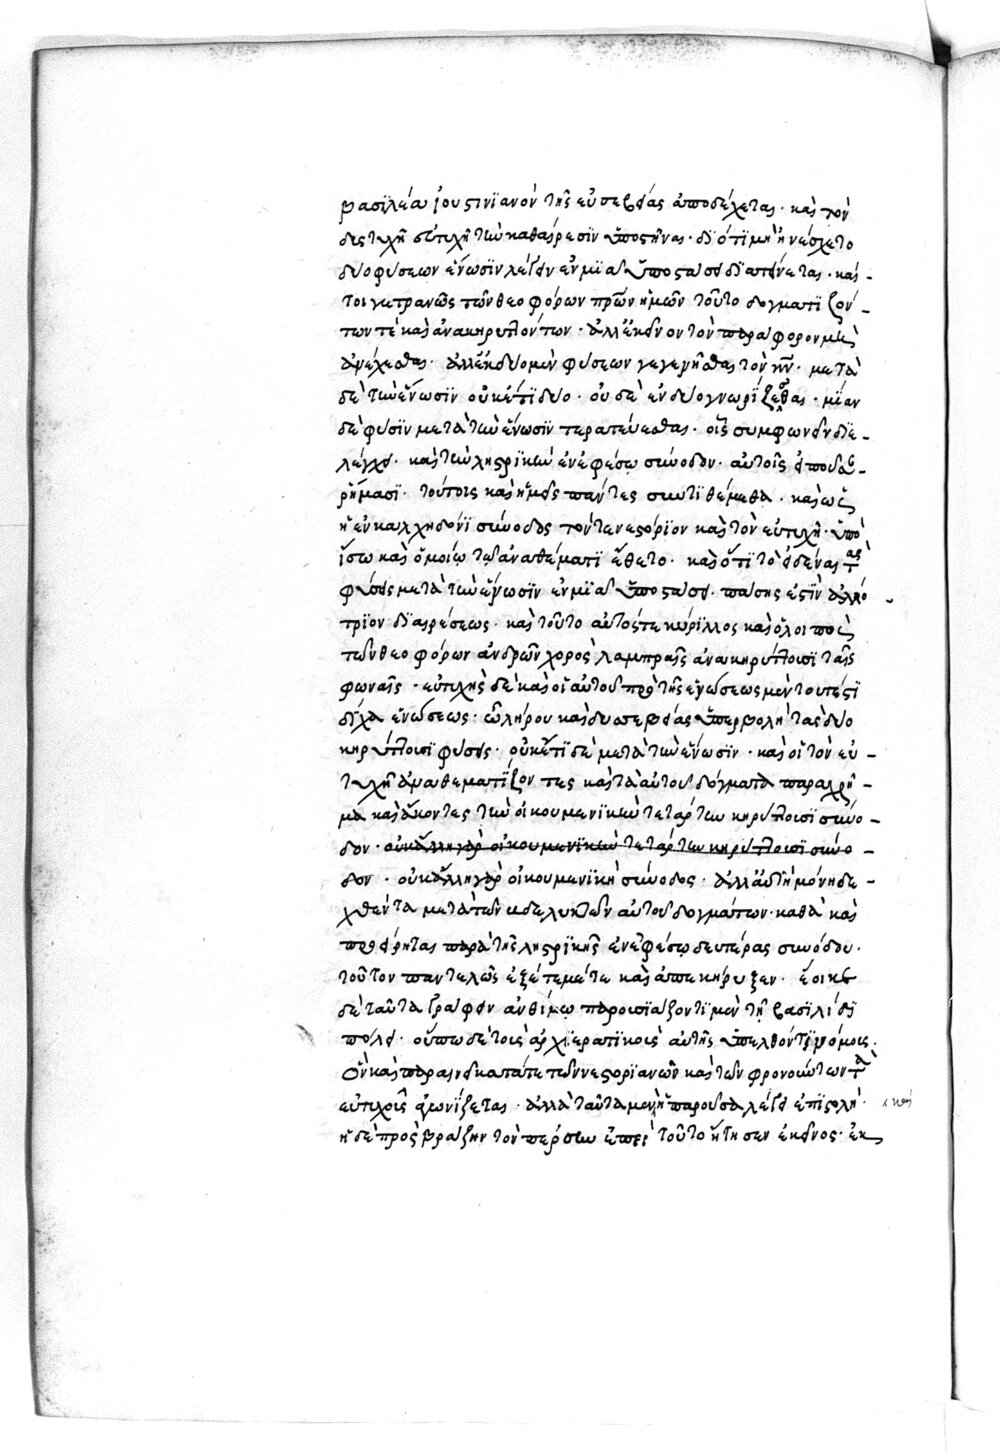 βασϊλέα ϊουστινϊανὸν τῆς εὐσεβείας ἀποδέχεται· καὶ τὸν
δυστυχῆ εὐτυχῆ τὴν καθαίρεσϊν ὑποστῆναι· δϊότι μὴ ἠνέσχετο
δύο φύσεων ἕνωσϊν λέγειν ἐν μϊᾷ ὑποστάσει δϊατείνεται· καί-
τοιγε τρανῶς τῶν θεοφόρων πρων ἡμῶν τοῦτο δογματϊζόν-
των τὲ καὶ ἀνακηρυττόντων· ἀλλ' ἐκεῖνον τὸν παράφρονα μὲν
ἀνέχεσθαι· ἀλλ' ἐκ δύο μὲν φύσεων γεγενῆσθαι τὸν κν· μετὰ
δὲ τὴν ἕνωσϊν οὐκέτϊ δύο· οὐδὲ ἐν δύο γνωρίζεσθαι· μίαν
δὲ φύσϊν μετὰ τὴν ἕνωσϊν τερατεύεσθαι· οἷς συμφωνεῖν δϊε-
λέγχει· καὶ τὴν ληστρϊκὴν ἐν ἐφέσῳ σύνοδον· αὐτοῖς
ῥήμασϊ· τούτοις καὶ ἡμεῖς πάντες συντϊθέμεθα· καὶ ὡς
ἡ ἐν καλχηδόνϊ σύνοδος τὸν τε νεστόριον καὶ τὸν εὐτυχῆ· ὑπὸ
ἴσῳ καὶ ὁμοίῳ τῷ ἀναθέματϊ ἔθετο· καὶ ὅτϊ τὸ εἰδέναι τὰς
φύσεις μετὰ τὴν ἕνωσϊν ἐν μϊᾷ ὑποστάσει· πάσης ἐστὶν ἀλλό-
τρϊον δϊαιρέσεως· καὶ τοῦτο αὐτός τε κύριλλος καὶ ὁ λοιπὸς
τῶν θεοφόρων ἀνδρῶν χορὸς λαμπραῖς ἀνακηρύττουσϊ ταῖς
φωναῖς· εὐτυχὴς δὲ καὶ οἱ αὐτοῦ πρὸ τῆς ἑνώσεως μὲν τουτέστϊ
δίχα ἑνώσεως· ὢ λήρου καὶ δυσσεβείας ὑπερβολὴ τὰς δύο
κηρύττουσϊ φύσεις· οὐκέτϊ δὲ μετὰ τὴν ἕνωσϊν· καὶ οἱ τὸν εὐ-
τυχῆ ἀναθεματϊζοντες καὶ τὰ αὐτοῦ δόγματα παραχρῆ-
μα καὶ ἄκοντες τὴν οἰκουμενϊκὴν τετάρτην κηρύττουσϊ σύνο-
δον· οὐκ ἄλλη γὰρ οἰκουμενϊκὴν τετάρτην κηρύττουσϊ σύνο-
δον· οὐκ ἄλλη γὰρ οἰκουμενϊκὴ σύνοδος· ἀλλ' αὐτὴ μόνη δε-
χθέντα μετὰ τῶν βδελυκτῶν αὐτοῦ δογμάτων· καθὰ καὶ
προείρηται παρὰ τῆς ληστρϊκῆς ἐν ἐφέσῳ δευτέρας συνόδου·
τοῦτον παντελῶς ἐξέτεμέ τε καὶ ἀπεκήρυξεν· ἔοικε
δὲ ταῦτα γράφειν ἀνθίμῳ παροισϊάζοντϊ μὲν τῇ βασϊλίδϊ
πόλει· οὔπω δὲ τοῖς ἀρχϊερατϊκοῖς αὐτῆς ὑπελθόντϊ νόμοις·
ὃν καὶ παραινεῖ κατά τε τῶν νεστορϊανῶν καὶ τῶν φρονούντων τὰ
εὐτυχοῦς ἀγωνίζεται· ἀλλὰ ταῦτα μὲν ἡ παροῦσα λέγει ἐπϊστολή·
ἡ δὲ πρὸς βράζην τὸν πέρσην ἐπεὶ τοῦτο ᾔτησεν ἐκεῖνος· ἐκ